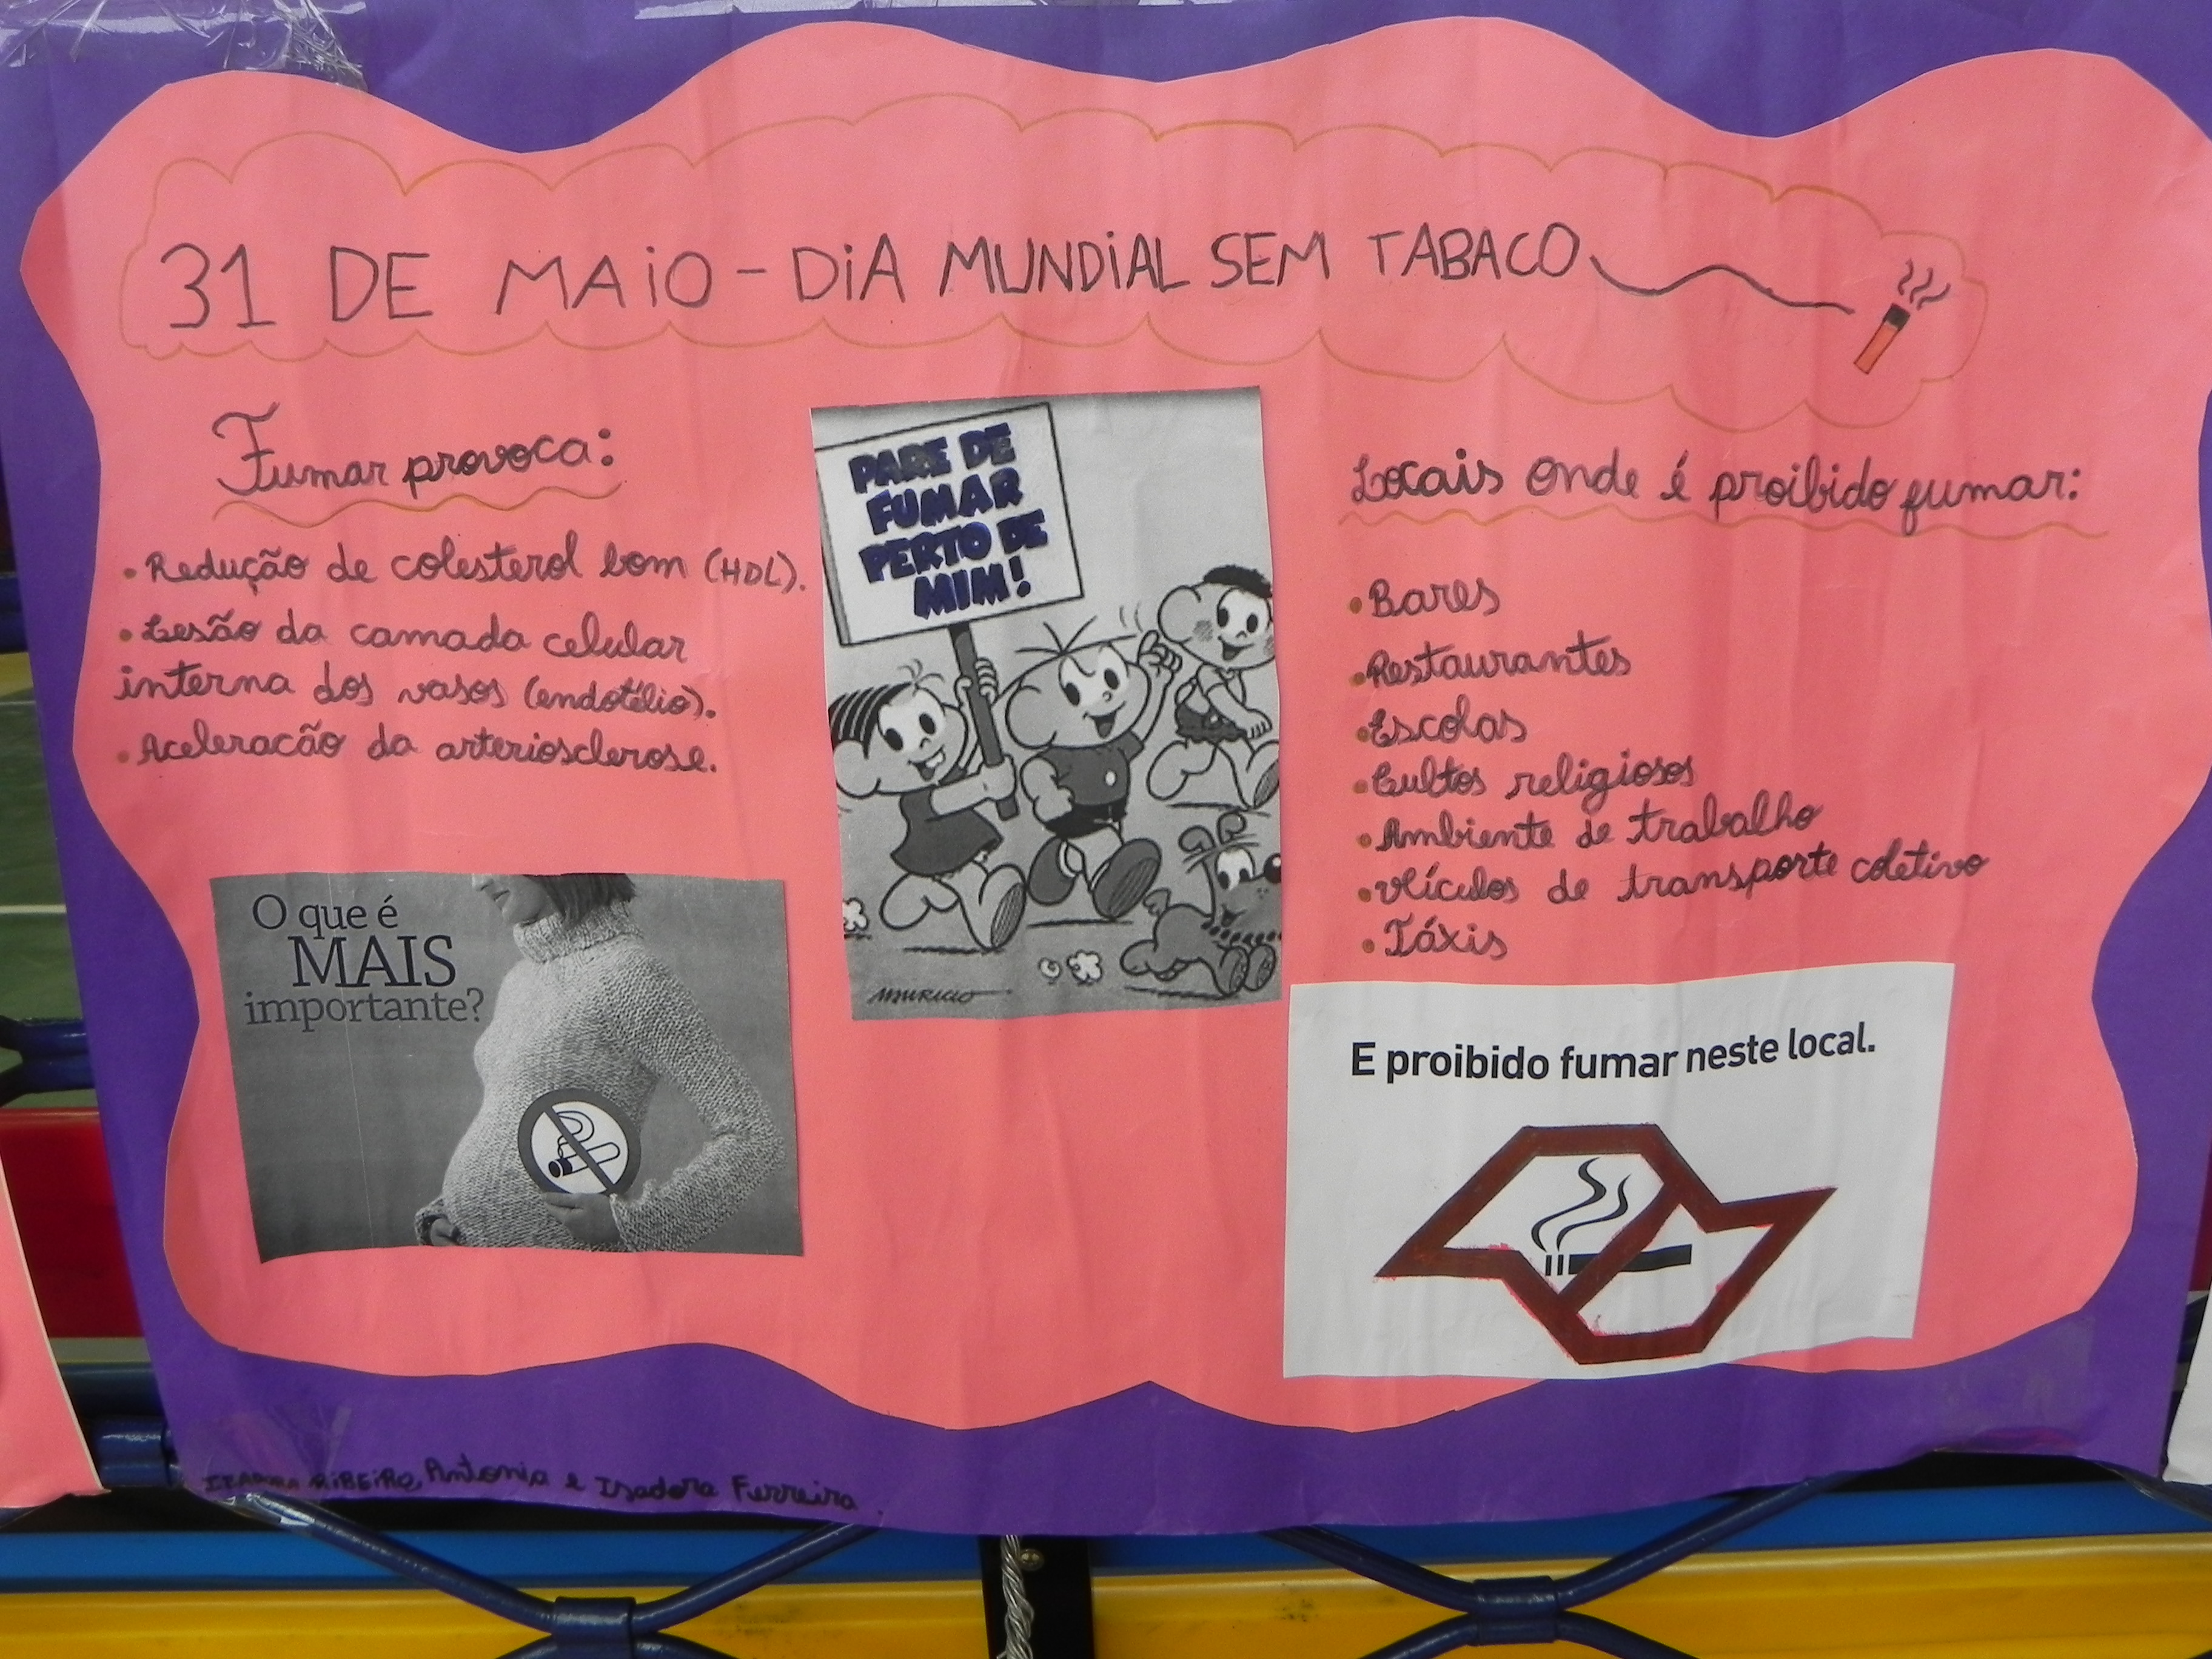 31 DE MAIO - DIA MUNDIAL SEM TABACO
Fumar provoca:
• Redução de colesterol bom (HDL).
• Lesão da camada celular
interna dos vasos (endotélio).
• Aceleracão da arteriosclerose.
O que é
MAIS
importante?
PARE DE
FUMAR
PERTO DE
MIM!
MAURICIO
Locais onde é proibido fumar:
• Bares
• Restaurantes
• Escolas
• Cultos religiosos
• Ambiente de trabalho
• Veículos de transporte coletivo
• Táxis
E proibido fumar neste local.
IZADORA RIBEIRO, Antonia e Isadora Ferreira.